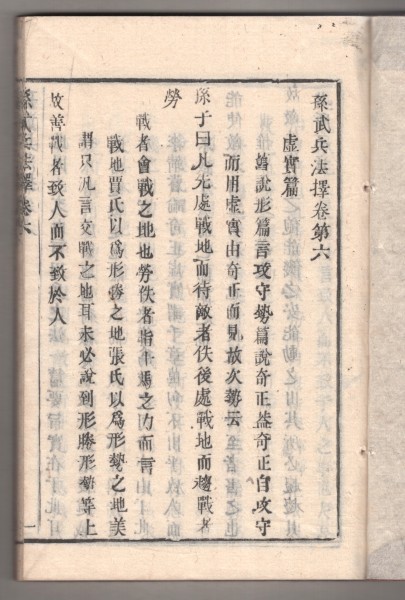 孫武兵法擇卷第六
虛實篇
舊說形篇言攻守勢篇說奇正蓋奇正自攻守
而用虛實由奇正而見故次勢云
孫子曰凡先處戰地而待敵者佚後處戰地而趨戰者
勞
戰者會戰之地也勞佚者指牛馬之力而言
戰地賈氏以爲形勢之地張氏以爲形勢之地美
謂只凡言交戰之地耳未必說到形勝形勢等上
故善戰者致人而不致於人
孫武兵法擇 卷六
一